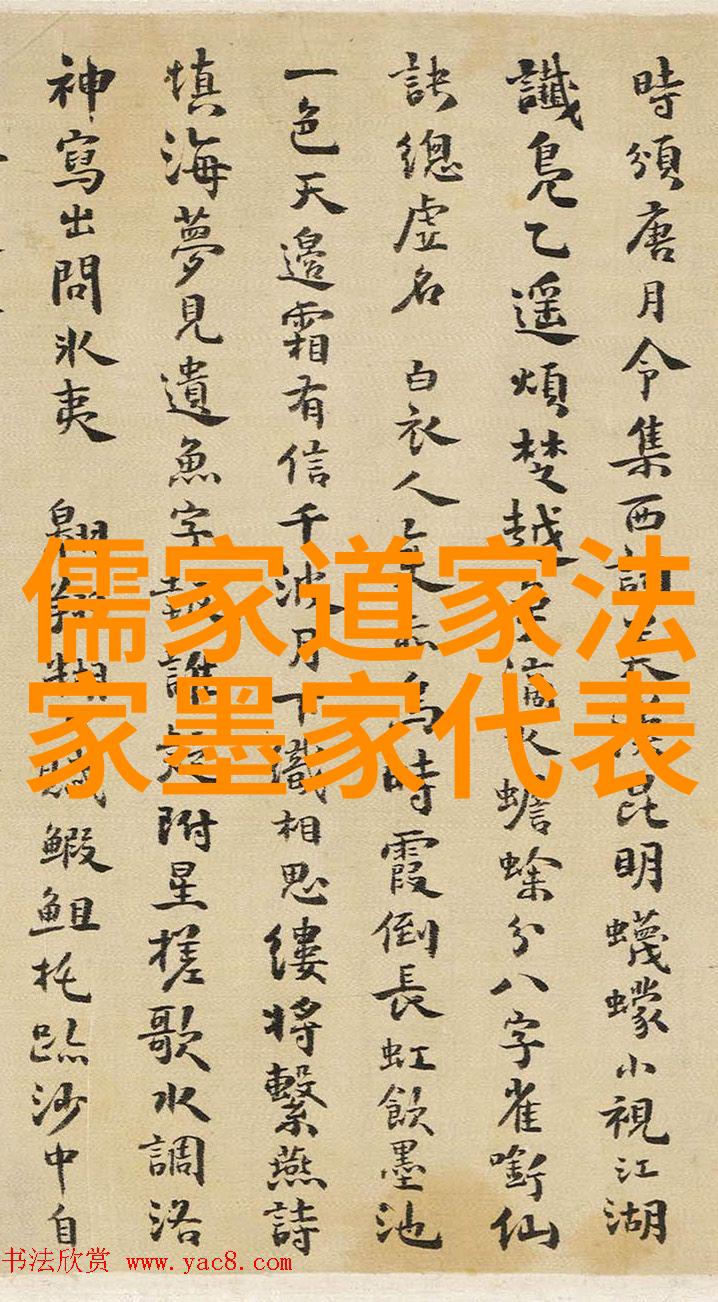 時頒唐月令集西
昆明蠛蠓小視江湖
讖鳧乙遥煩楚越
蟾蜍分八字雀銜仙
訣總虚名 白衣人
烏時霞倒長虹飲墨池
一色天邊霜有信千波月下織相思縷將繫燕詩
填海夢見遺魚字
附星槎歌水調洛
神寫出問冰夷 翱翔
鰕鉏托跡沙中自
儒家道家法
家墨家代表
书法欣赏 www.yac8.com